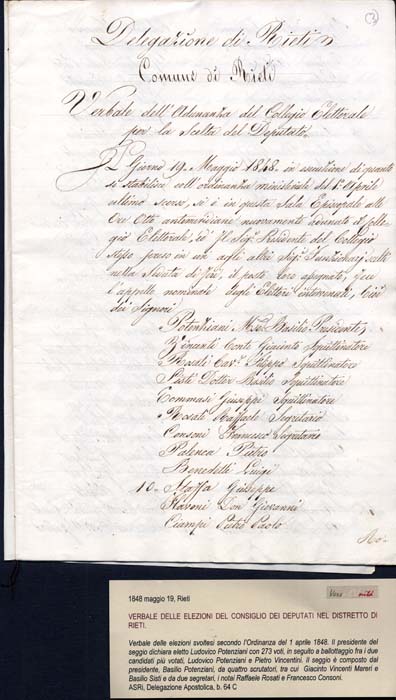 (3)
Delegazione di Rieti
Comune di Rieti
Verbale dell'Adunanza del Collegio Elettorale
per la Scelta del Deputato
Il Giorno 19. Maggio 1848. in esecuzione di quanto
si stabilisce coll'ordinanza ministeriale del 1.° Aprile
ultimo scorso, si è in questa Sala Episcopale alle
Ore Otto antimeridiane nuovamente adunato il Colle-
gio Elettorale, ed Il Sig. Presidente del Collegio
stesso preso in un agli altri Sig.i Funzionarj scelti
nella Seduta di jeri il posto loro assegnato, fece
l'appello nominale degli Elettori intervenuti, Cioè
dei Signori
Potenziani Basilio Presidente
Vincenti Conte Giacinto Squittinatore
Rosati Cav. Filippo Squittinatore
Sisti Dottor Basilio Squittinatore
Tommasi Giuseppe Squittinatore
Rosati Raffaele Segretario
Consoni Francesco Segretario
Palenca Pietro
Benedetti Luigi
10. Staffa Giuseppe
Flavoni Don Giovanni
Ciampi Pietro Paolo
1848 maggio 19, Rieti
VERBALE DELLE ELEZIONI DEL CONSIGLIO DEI DEPUTATI NEL DISTRETTO DI
RIETI.
Verbale delle elezioni svoltesi secondo l'Ordinanza del 1 aprile 1848. Il presidente del
seggio dichiara eletto Ludovico Potenziani con 273 voti, in seguito a ballottaggio fra i due
candidati più votati, Ludovico Potenziani e Pietro Vincentini. Il seggio è composto dal
presidente, Basilio Potenziani, da quattro scrutatori, tra cui Giacinto Vincenti Mareri e
Basilio Sisti e da due segretari, i notai Raffaele Rosati e Francesco Consoni.
ASRi, Delegazione Apostolica, b. 64 C